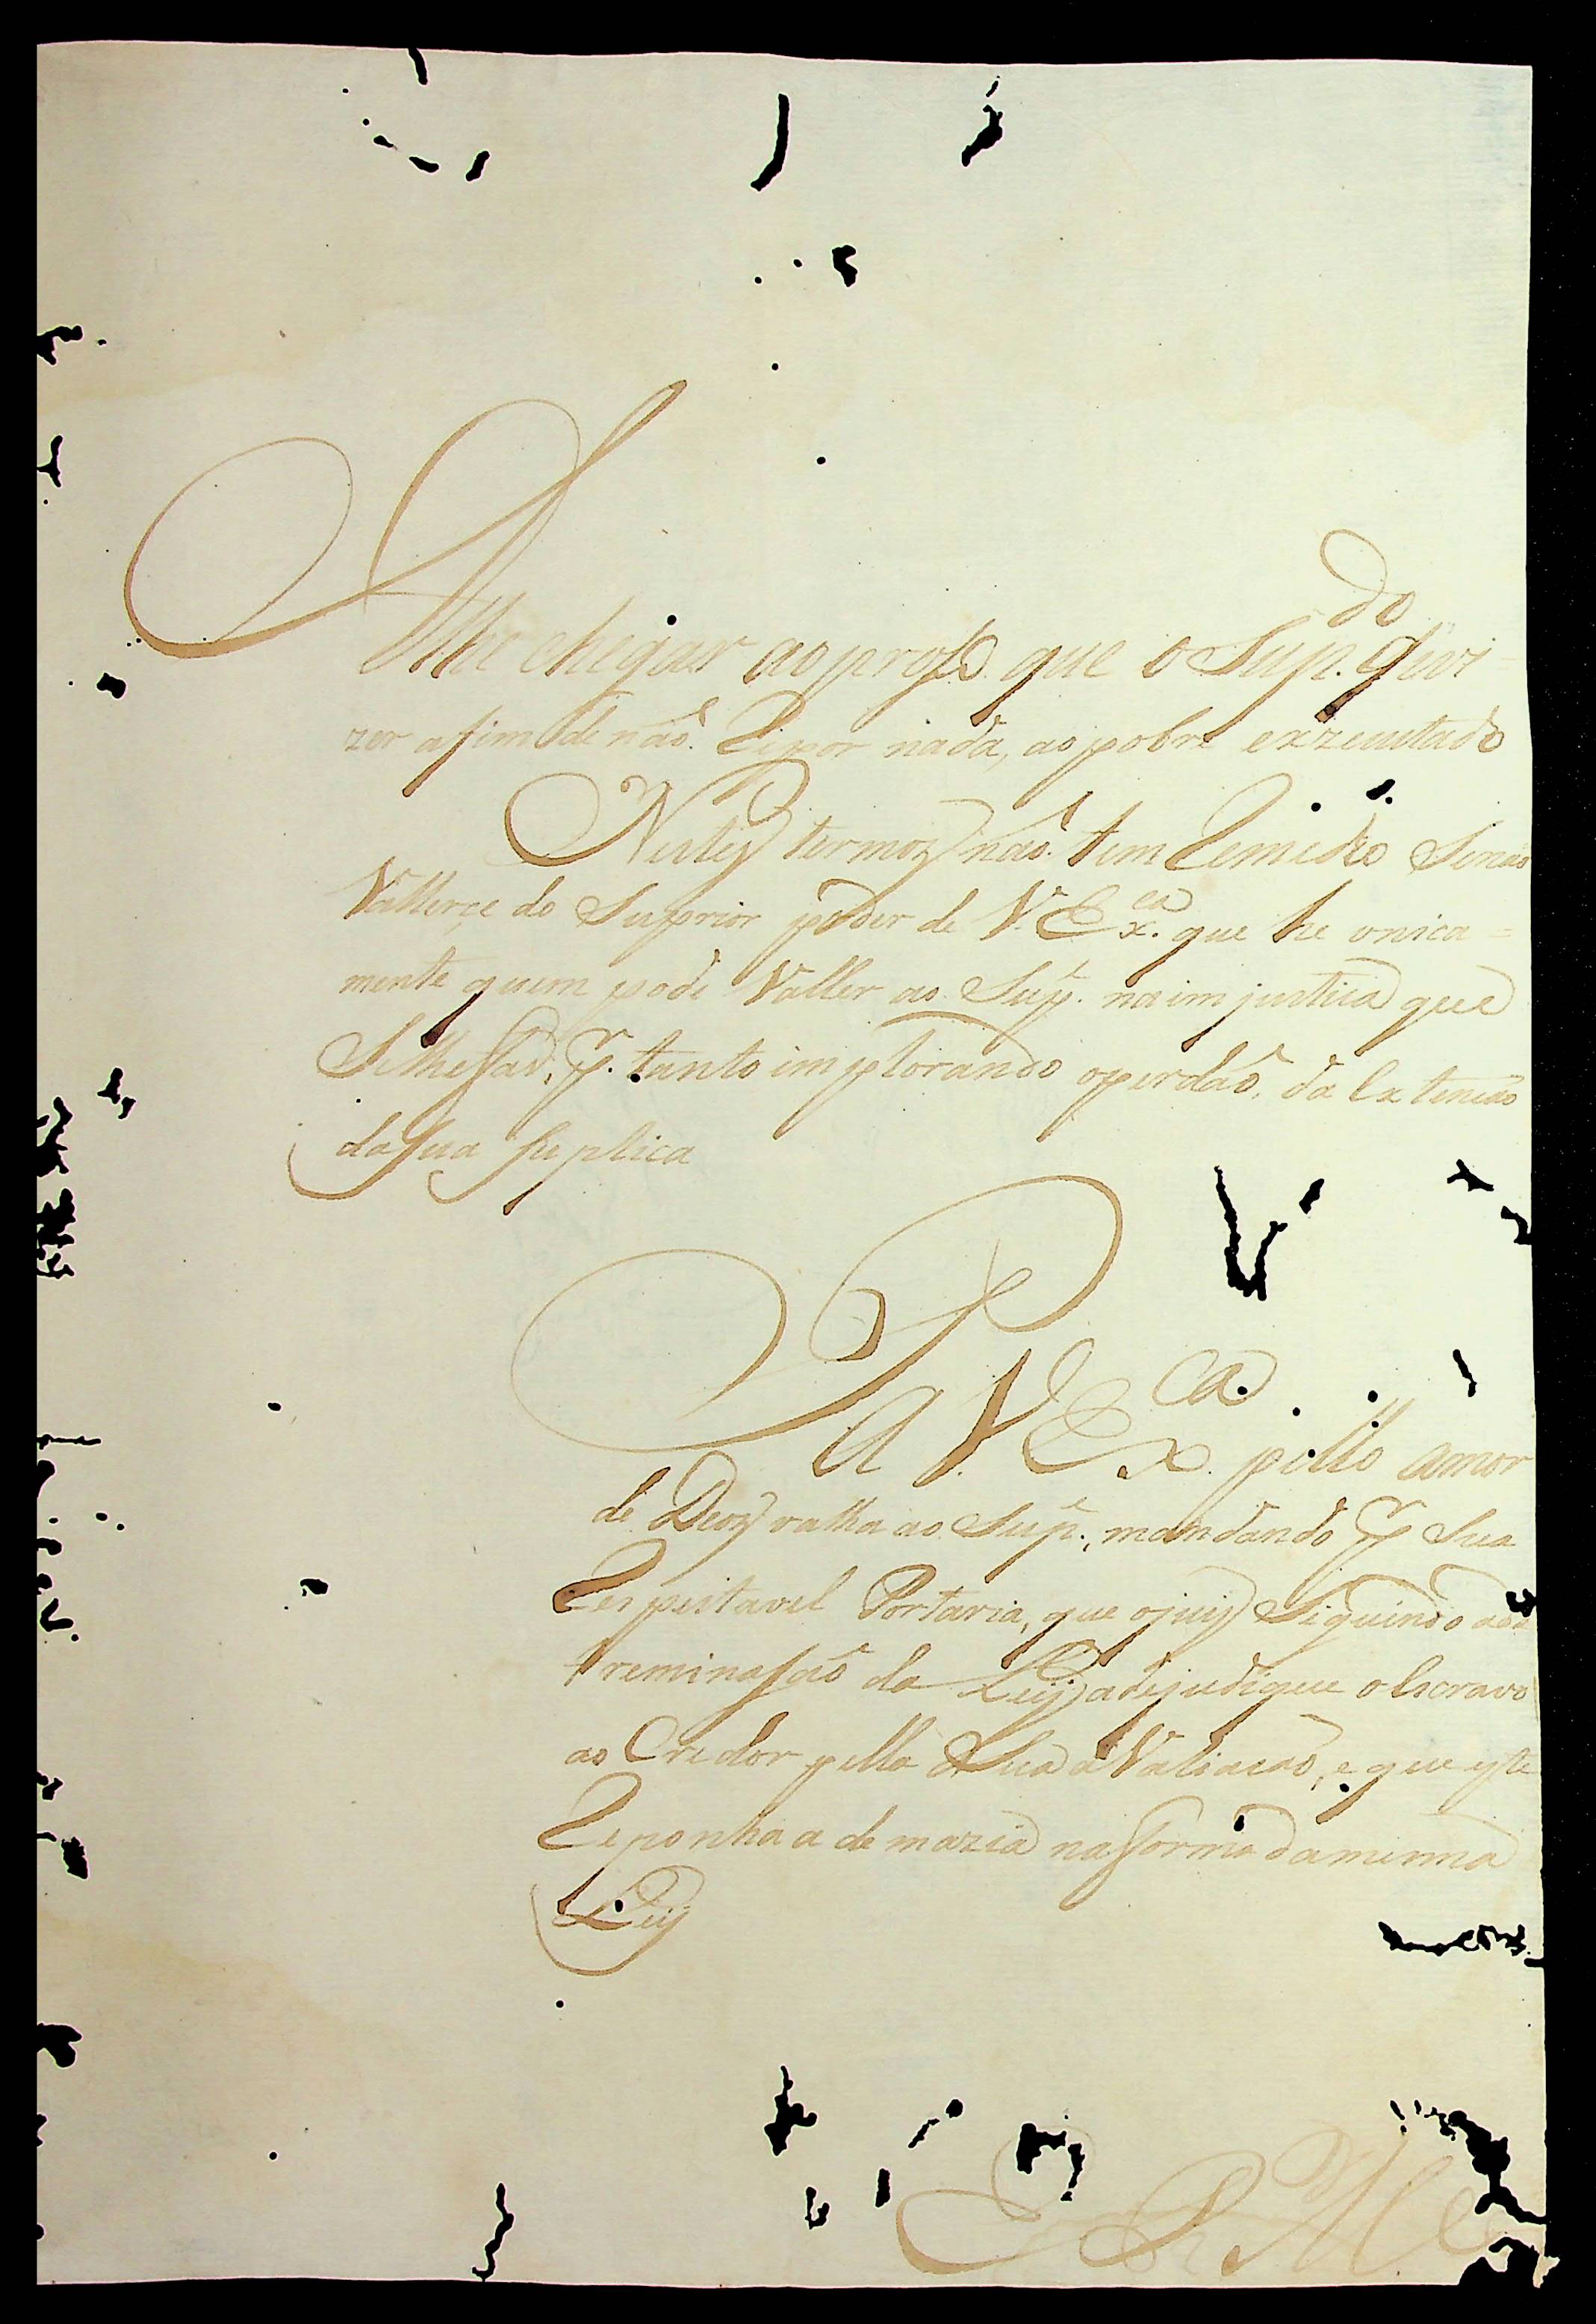 Alhe chegar ao preso. que o Sup.do quei-
zer afim de não. Repor nada, ao pobre exzecutado
Nestes termoz não. tem Remedio Senão
Vallerçe do Suprior poder de V. Ex.ca que he vnica=
mente quem pode Valler ao Sup.e na im justica que
Se lhe faz. P.r tanto im plorando o perdão, da Extencão
da sua suplica
P a V. Ex.ca pello amor
de Deoz valha ao Sup.e, mandando P.r Sua
Respeitavel Portaria, que o juiz Siguindo a de
treminasão da Ley adejudique o Escravo
ao Credor pella Sua aValiacão, e que este
Reponha a de mazia na forma da mesma
Ley
E R M.ce